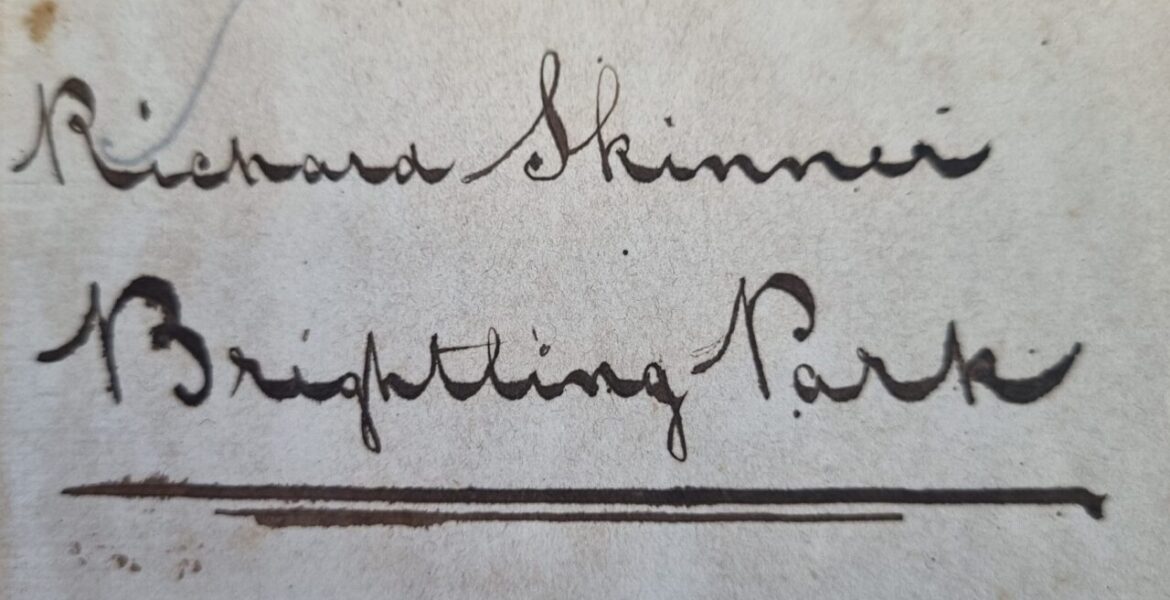 Richard Skinner
Brightling Park